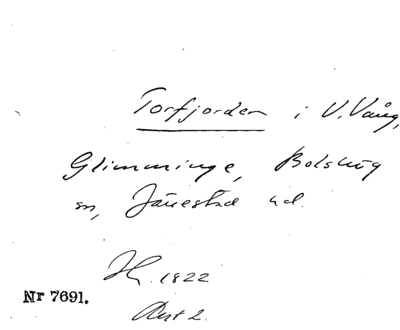 Torfjorden i V. Vång,
Glimminge, Bolshög
sn, Järrestad hd.
H. 1822
Akt 2.
Nr 7691.